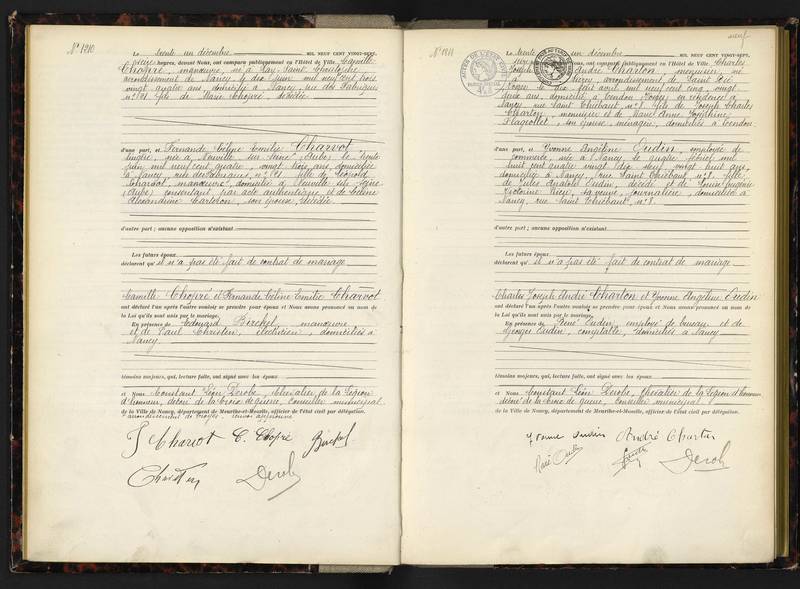 N° 1210
Le trente un décembre MIL NEUF CENT VINGT-SEPT,
heures, devant Nous, ont comparu publiquement en l'Hôtel de Ville, Camille
Chopré, manœuvre, né à Lay-Saint-Christophe
arrondissement de Nancy le dix juin mil neuf cent trois
vingt quatre ans, domicilié à Nancy, rue des Fabriques
fils de Marie Chopré, décédée
d'une part, et Fernande Céline Emilie Charvot
née à Neuville sur Seine, Aube, le trente
juin mil neuf cent quatre, vingt trois ans, domiciliée
à Nancy, rue des Fabriques, fille de Léopold
Charvot, manœuvre, domicilié à Neuville sur Seine
Aube, consentant par acte authentique, et de Céline
Alexandrine son épouse, décédée
d'autre part ; aucune opposition n'existant
Les futurs époux
déclarent qu'il n'a pas été fait de contrat de mariage
Camille Chopré et Fernande Céline Emilie Charvot
ont déclaré l'un après l'autre vouloir se prendre pour époux et Nous avons prononcé au nom de
la Loi qu'ils sont unis par le mariage.
En présence de Edouard Birckel, manœuvre
et de Paul Christen, électricien, domiciliés à
Nancy
témoins majeurs, qui, lecture faite, ont signé avec les époux
et Nous Constant Léon Derobe, Chevalier de la Légion
d'honneur, décoré de la Croix de guerre, Conseiller municipal
de la Ville de Nancy, département de Meurthe-et-Moselle, officier de l'état civil par délégation.
F Charvot C. Chopré Birckel
Christen Derobe
N° 1211
Le trente un décembre MIL NEUF CENT VINGT-SEPT,
heures, devant Nous, ont comparu publiquement en l'Hôtel de Ville, Charles
Joseph André Charton, menuisier, né
arrondissement de Saint Dié
Vosges le dix sept avril mil neuf cent cinq, vingt
deux ans, domicilié à Tendon Vosges en résidence à
Nancy, rue Saint Thiébaut, n° 8, fils de Joseph Charles
Charton, menuisier et de Marie Anne Joséphine
Flageollet, son épouse, ménagère, domiciliés à Tendon
d'une part, et Yvonne Angéline Eudin, employée de
commerce, née à Nancy le quatre février mil
huit cent quatre vingt dix neuf, vingt huit ans,
domiciliée à Nancy, rue Saint Thiébaut, n° 8, fille
de Jules Anatole Eudin, décédé et de Louise Eugénie
Victorine sa veuve, journalière, domiciliée à
Nancy, rue Saint Thiébaut, n° 8
d'autre part ; aucune opposition n'existant
Les futurs époux
déclarent qu'il n'a pas été fait de contrat de mariage
Charles Joseph André Charton et Yvonne Angéline Eudin
ont déclaré l'un après l'autre vouloir se prendre pour époux et Nous avons prononcé au nom de
la Loi qu'ils sont unis par le mariage.
En présence de René Eudin, employé de bureau et de
Georges Eudin, comptable, domiciliés à Nancy
témoins majeurs, qui, lecture faite, ont signé avec les époux
et Nous Constant Léon Derobe, Chevalier de la Légion d'honneur
décoré de la Croix de guerre, Conseiller municipal
de la Ville de Nancy, département de Meurthe-et-Moselle, officier de l'état civil par délégation.
Yvonne Eudin André Charton
René Eudin Derobe